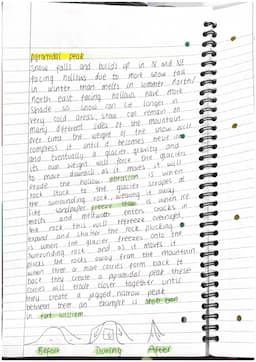 pyramidal peak
Snow falls and builds up in N and NE
facing hollows due to more snow fall
in winter than melts in summer. North/
north east facing hollows have more
shade so snow can lie longer in
very cold areas, snow can remain on
many different sides of the mountain.
Over time the weight of the snow will
compress it until it becomes névé ice
and eventually a glacier. gravity and
its own weight will force the glaciers
to move downhill as it moves it will
erode the hollow. abrasion is when
rock stuck to the glacier scrapes at
the surrounding rock, wearing it away
like sandpaper. freeze thaw is when ice
melts and meltwater enters cracks in
the rock this will refreeze overnight,
expand and shatter the rock. plucking
is when the glacier freezes onto the
surrounding rock and as it moves it
plucks the rocks away from the mountain
when three or more corries form back to
back they create a pyramidal peak these
corries will erode closer together until
they create a jagged, narrow peak
between them an example is
in fort william
Before During After